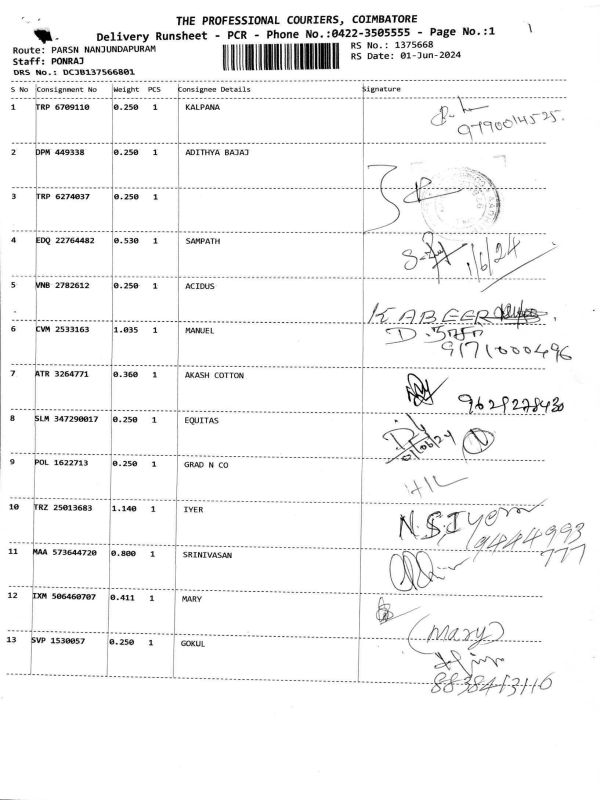 THE PROFESSIONAL COURIERS, COIMBATORE
Delivery Runsheet - PCR - Phone No.:0422-3505555 - Page No.:1
Route: PARSN NANJUNDAPURAM RS No.: 1375668
Staff: PONRAJ RS Date: 01-Jun-2024
DRS No.: DCJB137566801
S No Consignment No Weight PCS Consignee Details Signature
1 TRP 6709110 0.250 1 KALPANA
9790014525.
2 DPM 449338 0.250 1 ADITHYA BAJAJ
3 TRP 6274037 0.250 1
4 EDQ 22764482 0.530 1 SAMPATH
1/6/24
5 VNB 2782612 0.250 1 ACIDUS
KABEER
6 CVM 2533163 1.035 1 MANUEL
9171000496
7 ATR 3264771 0.360 1 AKASH COTTON
9629278430
8 SLM 347290017 0.250 1 EQUITAS
01/06/24 1
9 POL 1622713 0.250 1 GRAD N CO
H/L
10 TRZ 25013683 1.140 1 IYER
N.S.Iyer
9444993
777
11 MAA 573644720 0.800 1 SRINIVASAN
12 IXM 506460707 0.411 1 MARY
(Mary)
13 SVP 1530057 0.250 1 GOKUL
8838413116